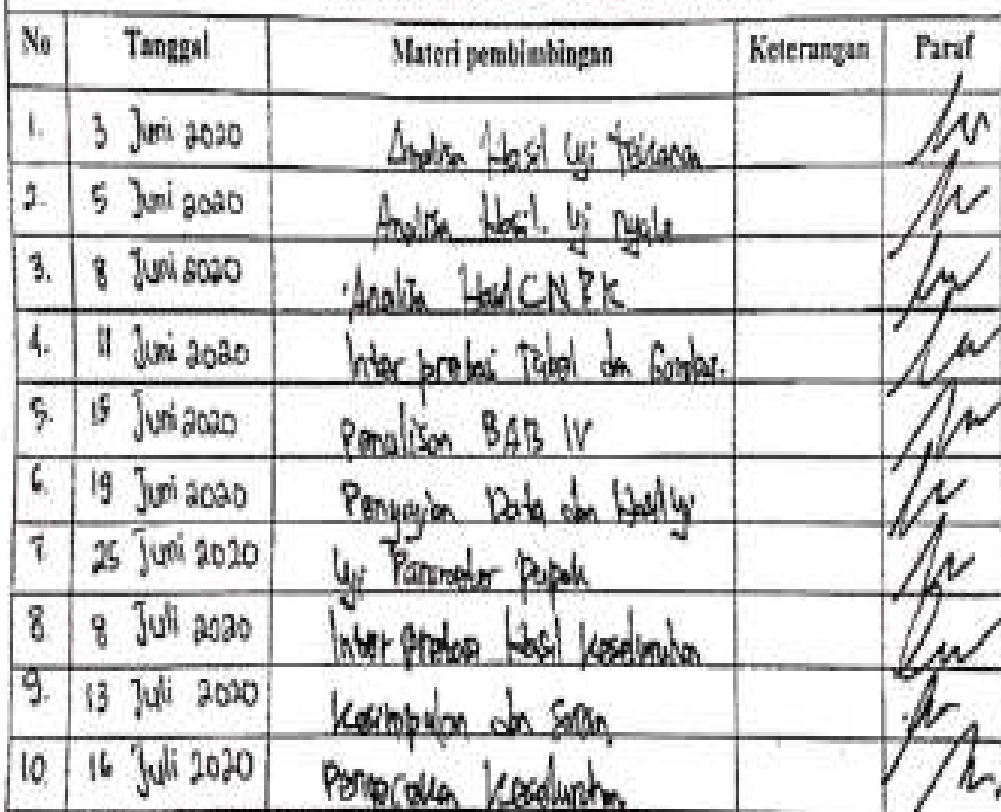 No Tanggal Materi pembimbingan Keterangan Paraf
1. 3 Juni 2020 Analisa Hasil Uji Tekanan
2. 5 Juni 2020 Analisa Hasil Uji nyala
3. 8 Juni 2020 Analisa Hasil CNPK
4. 11 Juni 2020 Interpretasi Tabel dan Gambar.
5. 15 Juni 2020 Penulisan BAB IV
6. 19 Juni 2020 Penyajian Data dan Hasil Uji
7. 25 Juni 2020 Uji Parameter pupuk
8 8 Juli 2020 Interpretasi Hasil keseluruhan
9. 13 Juli 2020 Kesimpulan dan Saran
10 16 Juli 2020 keseluruhan